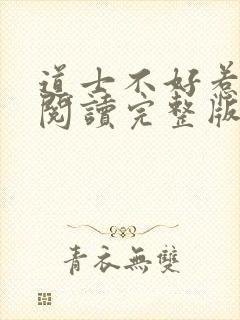 道士不好惹
閱讀完整版
青衣無雙